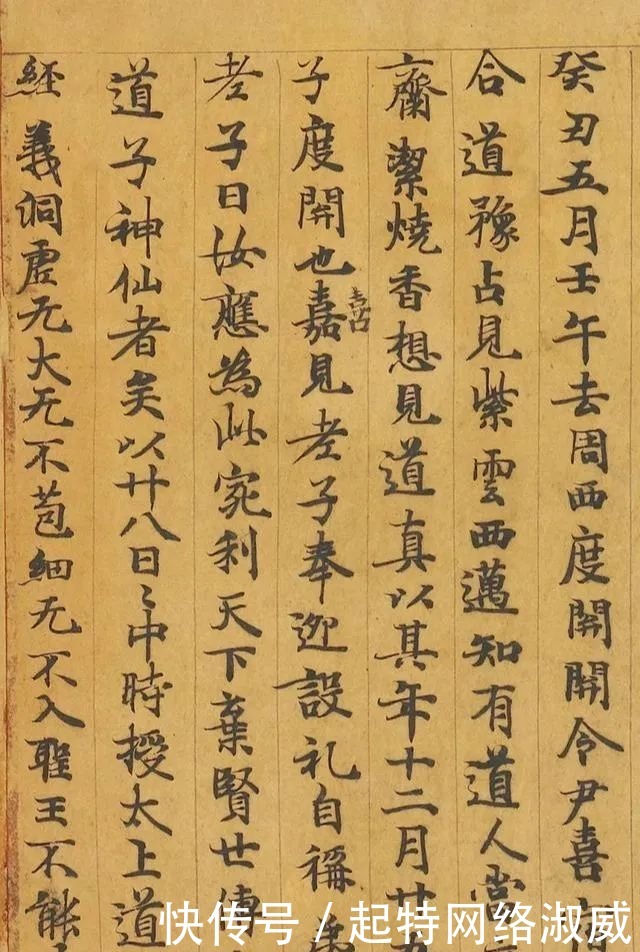 癸丑五月壬午去周西度關關令尹喜
合道豫占見紫雲西邁知有道人當
齋潔燒香想見道真以其年十二月廿
子度關也嘉喜見老子奉迎設礼自稱
老子曰汝應為此宛利天下棄賢世傳
道子神仙者矣以廿八日〻中時授太上道
經義洞虛无大无不苞細无不入聖王不能
快传号 / 起特网络淑威